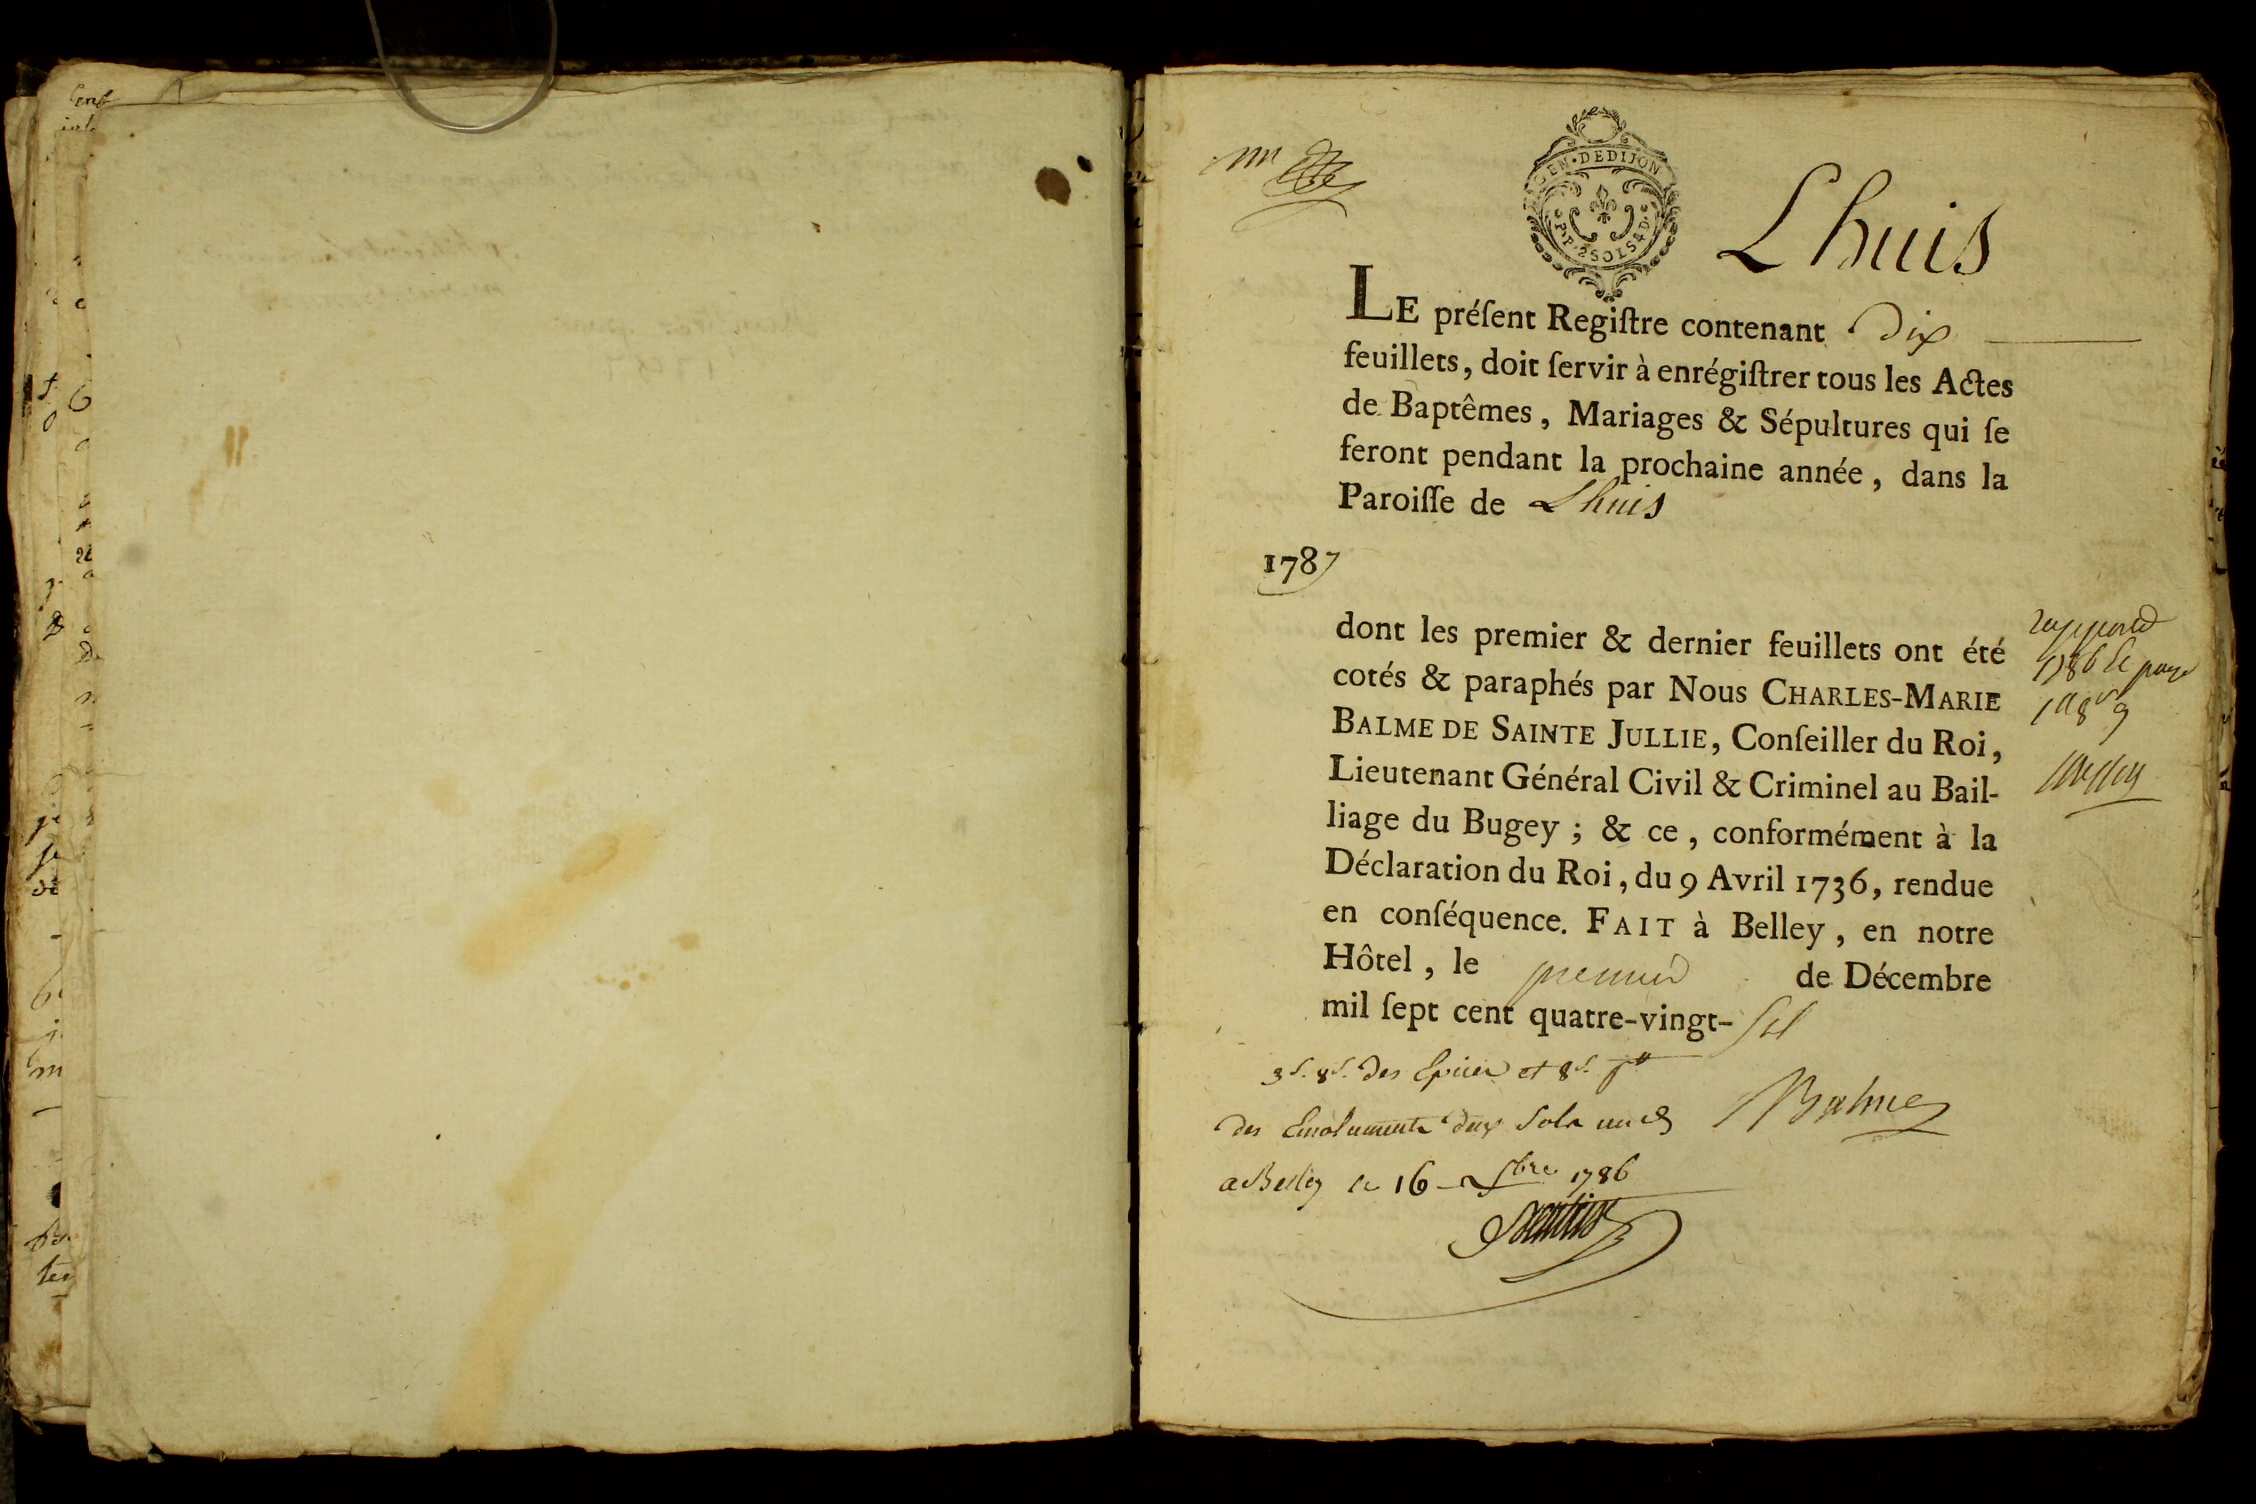 GEN·DEDIJON
P.P. 2 SOLS 4 D.
Lhuis
LE préſent Regiſtre contenant dix
feuillets, doit ſervir à enrégiſtrer tous les Actes
de Baptêmes, Mariages & Sépultures qui ſe
feront pendant la prochaine année, dans la
Paroiſſe de Lhuis
1787
dont les premier & dernier feuillets ont été
cotés & paraphés par Nous CHARLES-MARIE
BALME DE SAINTE JULLIE, Conſeiller du Roi,
Lieutenant Général Civil & Criminel au Bail-
liage du Bugey ; & ce, conformément à la
Déclaration du Roi, du 9 Avril 1736, rendue
en conſéquence. FAIT à Belley, en notre
Hôtel, le premier de Décembre
mil ſept cent quatre-vingt- six
3s. 8d. des Epices et 8s.
des Emoluments deux sols
a Belley le 16 1786
Balme
1786